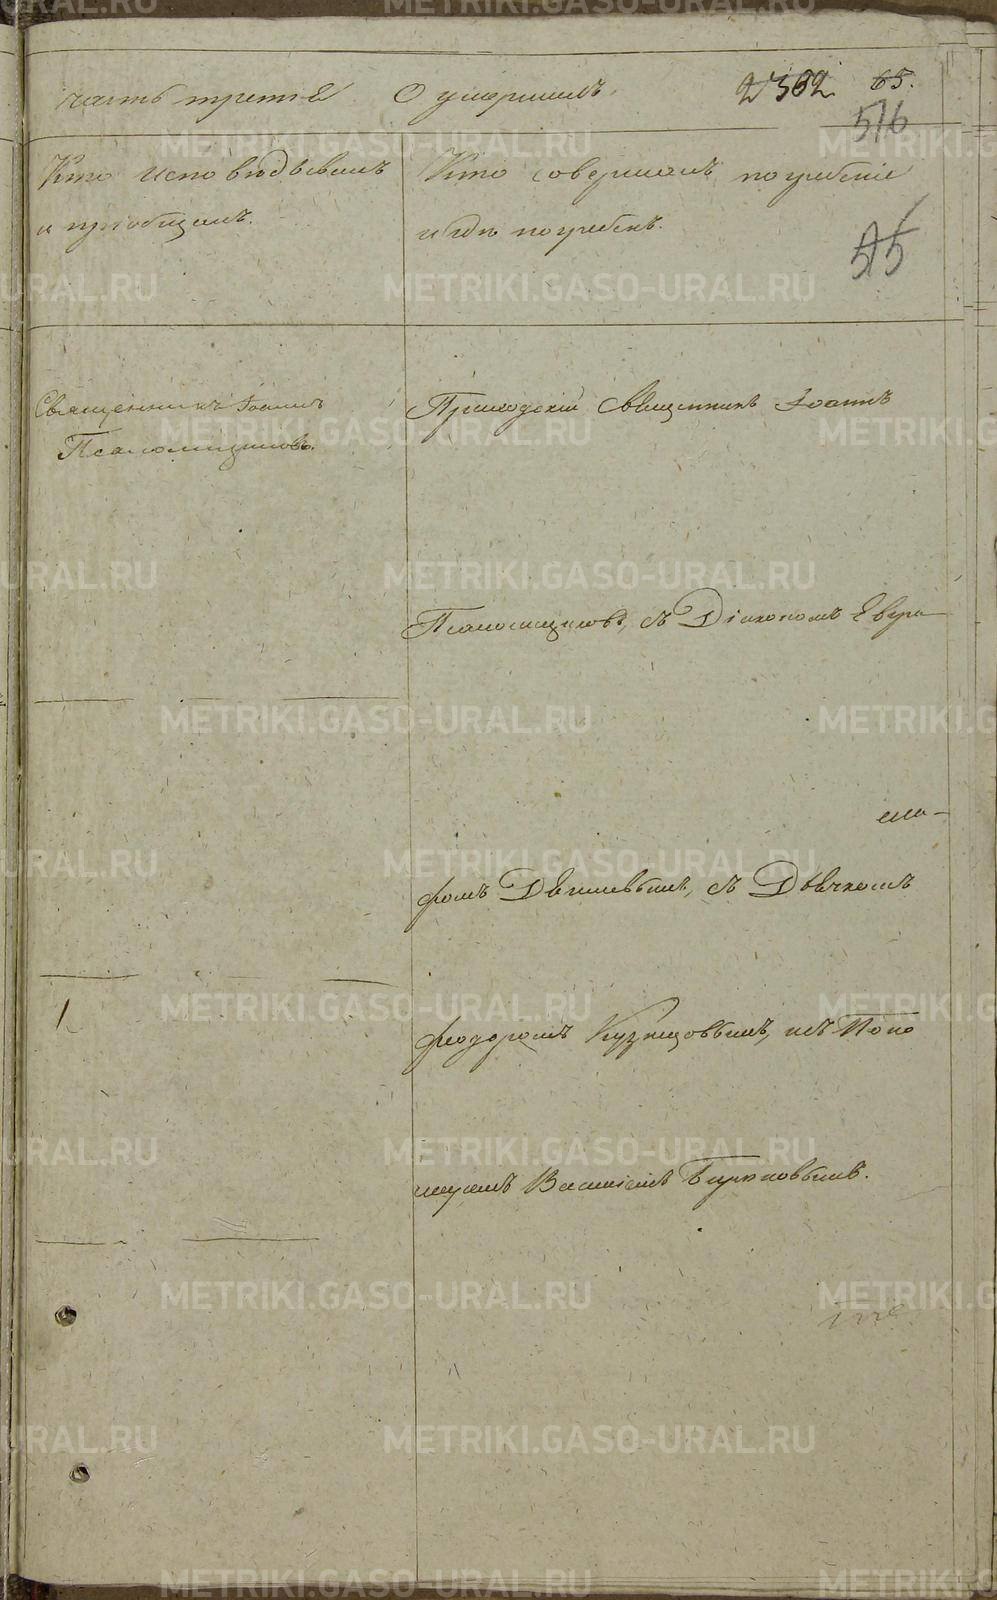 часть третья О умершихъ. 2362 65.
516
Кто исповѣдывалъ
и пріобщалъ.
Кто совершалъ погребеніе
и гдѣ погребенъ.
515
Священникъ Іоаннъ
Псаломщиковъ.
Приходскій Священникъ Іоаннъ
Псаломщиковъ, съ Діакономъ Евгра-
фомъ съ Дьячкомъ
Феодоромъ Кузнецовымъ, и съ Поно
маремъ Василіемъ
METRIKI.GASO-URAL.RU